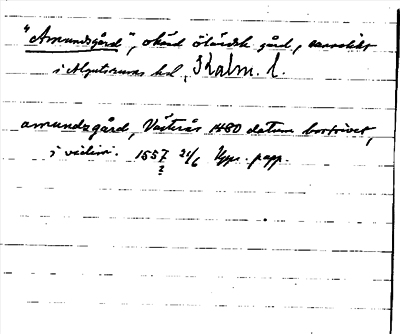 "Amundsgård", okänd öländsk gård, sannolikt
i Algutsrums hd, Kalm. l.
amundzgård, Västerås 1480 datum bortrivet,
i vidim. 1557 21/6 Upps. papp.
?